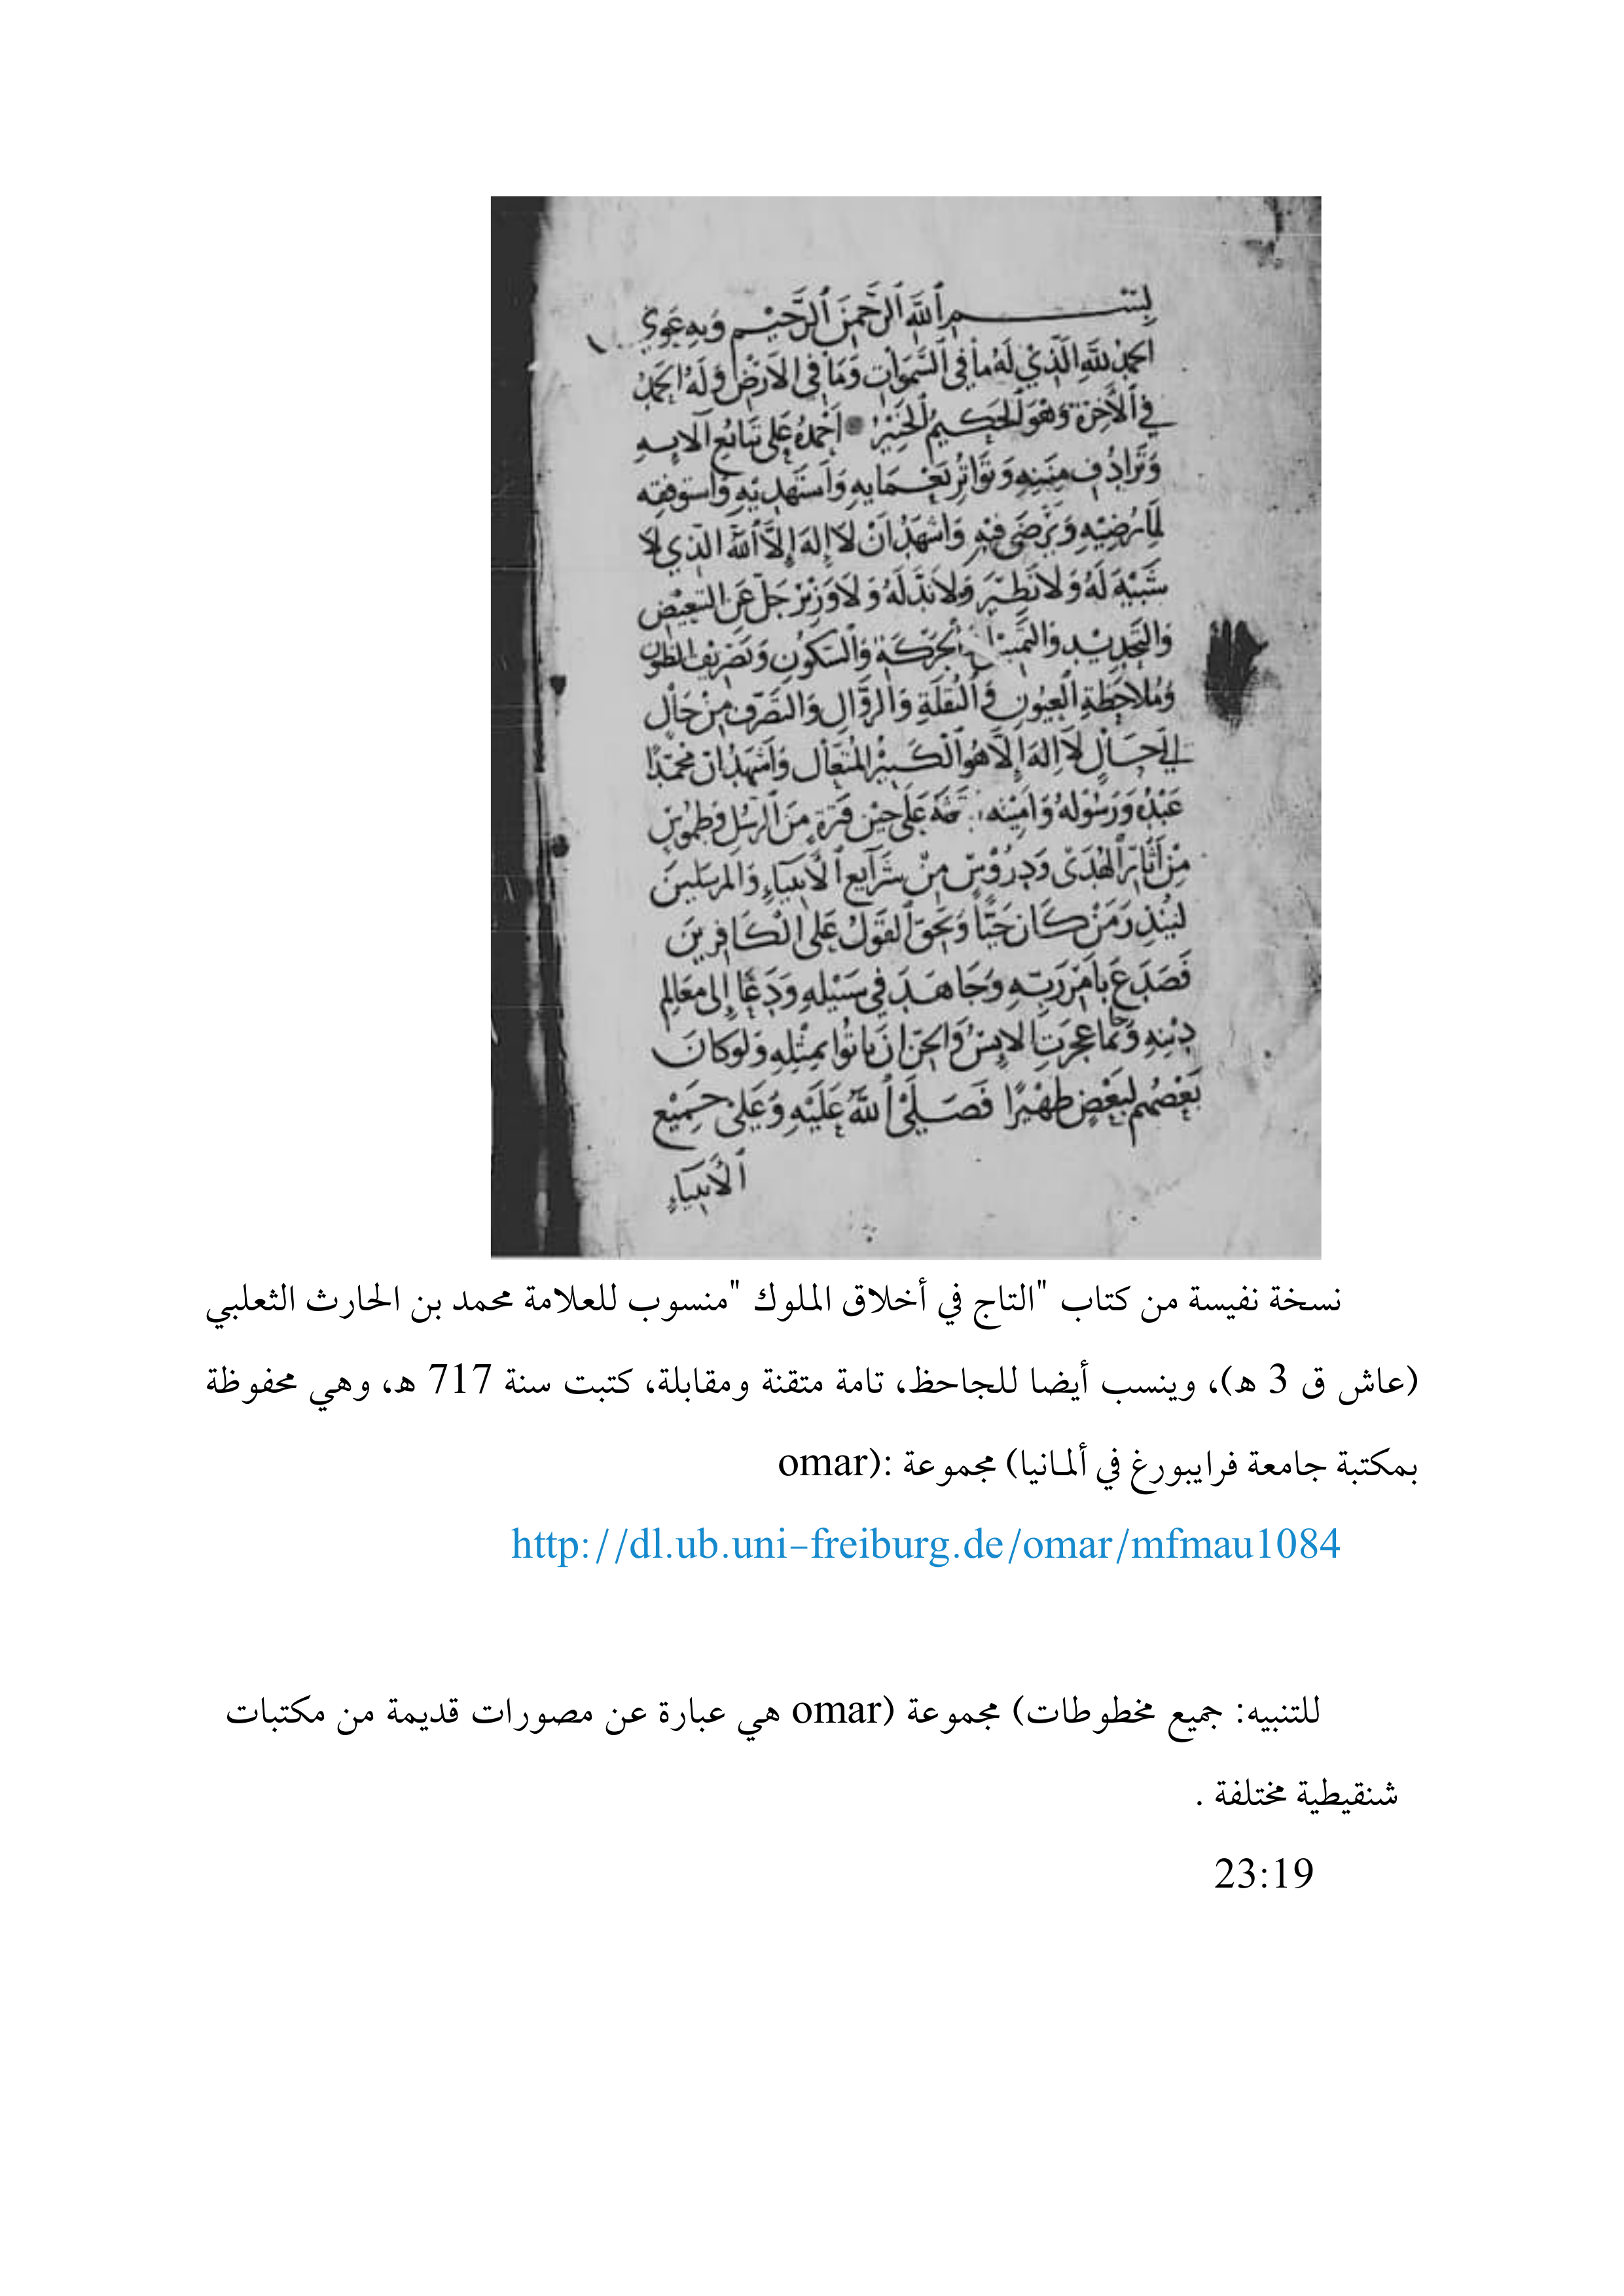 بسم ٱلله ٱلرَّحمن ٱلرَّحيم وبه عوني
الحمد لله الذي له ما في السموات وما في الارض وله الحمد
في ٱلأخرة وهو ٱلحكيم ٱلخبير أحمده على تتابع آلايه
وترادف مننه وتواتر نعمايه وأستهديه وأستوفقه
لما يرضيه ويرضى فيه وأشهد أن لا إله إلا ٱلله الذي لا
شبيه له ولا نظير ولا ند له ولا وزير جل عن التبعيض
والتحديد والحركة والسكون وتصريف الظنون
وملاحظة ٱلعيون والنقلة والزوال والتصرف من حال
إلى حال لا إله إلا هو ٱلكبير المتعال وأشهد ان محمدا
عبده ورسوله وأمينه على حين فترة من ٱلرسل وطموس
من أثار ٱلهدى ودروس من شرايع ٱلأنبياء والمرسلين
لينذر من كان حيّا ويحق ٱلقول على الكافرين
فصدع بامر ربه وجاهد في سبيله ودعا إلى معالم
دينه عجزت الإنس والجن ان ياتوا بمثله ولو كان
بعضهم لبعض ظهيرا فصلى ٱلله عليه وعلى جميع
ٱلأنبياء
نسخة نفيسة من كتاب "التاج في أخلاق الملوك "منسوب للعلامة محمد بن الحارث الثعلبي
(عاش ق 3 هـ)، وينسب أيضا للجاحظ، تامة متقنة ومقابلة، كتبت سنة 717 هـ، وهي محفوظة
بمكتبة جامعة فرايبورغ في ألمانيا) مجموعة :(omar
http://dl.ub.uni-freiburg.de/omar/mfmau1084
للتنبيه: جميع مخطوطات) مجموعة (omar هي عبارة عن مصورات قديمة من مكتبات
شنقيطية مختلفة .
23:19